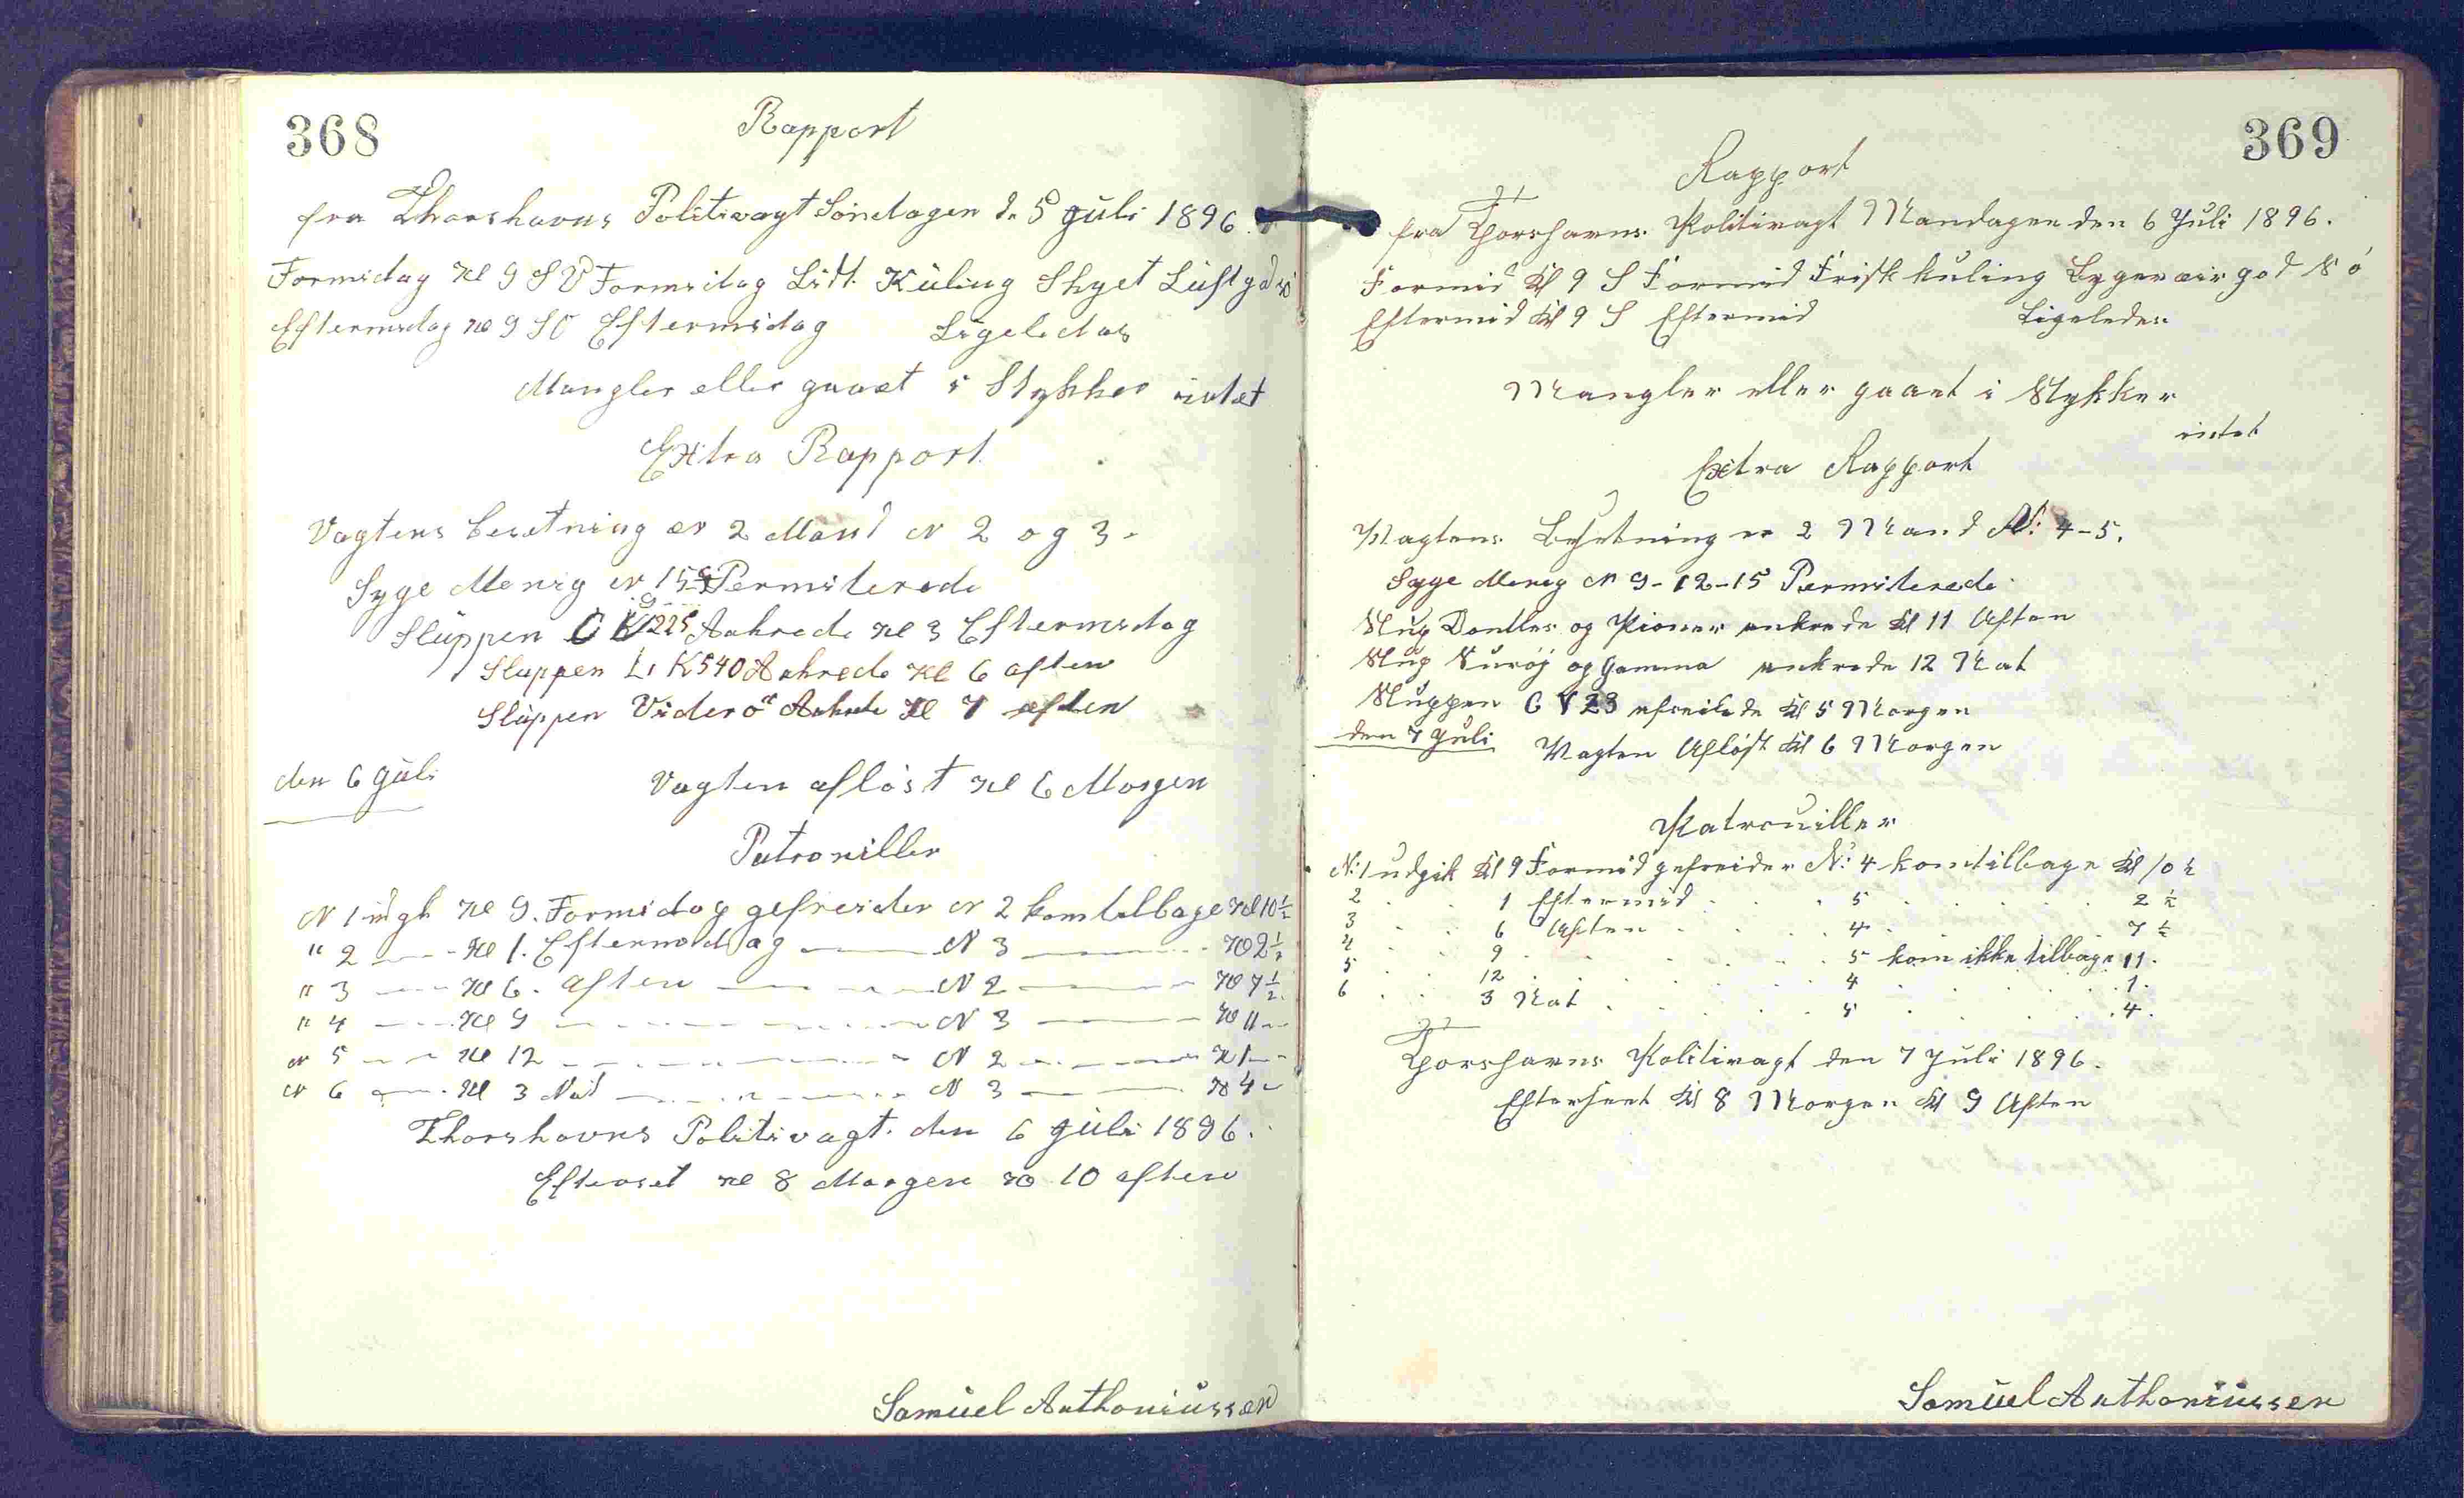 368
Rapport
fra Thorshavns Politivagt Söndagen d. 5 Juli 1896.
Formidag Kl 9 SV Formidag Lidt Kúling Skyet Lúft god
Eftermidag Kl 9 SO Eftermidag Ligeledes
Mangler eller gaaet i Stykker intet
Extra Rapport
Vagtens besetning er 2 Mand N 2 og 3.
Syge Menig N 15 Permiterede
Slúppen Ankrede Kl 3 Eftermidag
Sluppen L K 540 Ankrede Kl 6 aften
Slúppen Viderö Kl 7 aften
den 6 Júli Vagten aflöst Kl 6 Morgen
Patrouiller
N 1 údgk Kl 9. Formidag gefreider N 2 kom tilbage Kl 10 1/2
" 2 Kl 1. Eftermidag N 3 Kl 2 1/2
" 3 Kl 6. aften N 2 Kl 7 1/2
" 4 Kl 9 N 3 Kl 11
N 5 Kl 12 N 2 Kl 1
N 6 Kl 3 Nat N 3 Kl 4
Thorshavns Politivagt. den 6 Júli 1896.
Efterset Kl 8 Morgen Kl 10 aften
Samúel Anthoniússen
369
Rapport
fra Thorshavns Politivagt Mandagen den 6 Júli 1896.
Formid Kl 9 S Formid Frisk kúling god
Eftermid Kl 9 S Eftermid Ligeledes
Mangler eller gaaet i Stykker
intet
Extra Rapport
Vagtens Besetning er 2 Mand N: 4-5.
Syge Menig N 9-12-15 Permiterede
Slúp Dontles og Pioner ankrede Kl 11 Aften
Slúp Súröj og Gamma ankrede 12 Nat
Slúppen C V 23 afseilede Kl 5 Morgen
den 7 Júli Vagten Aflöst Kl 6 Morgen
Patroúiller
N: 1 údgik Kl 9 Formid gefreider N: 4 kom tilbage Kl 10 1/2
2 . . 1 Eftermid . . . 5 . . . . . 2 1/2
3 . . 6 Aften . . . 4 . . . . . 7 1/2
4 . . 9 . . . . . 5 kom ikke tilbage 11.
5 . . 12 . . . . . 4 . . . . . 1.
6 . . 3 Nat . . . . 5 . . . . . 4.
Thorshavns Politivagt den 7 Júli 1896.
Efterseet Kl 8 Morgen Kl 9 Aften
Samúel Anthoniússen